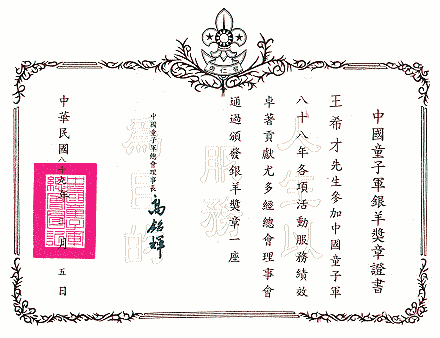 中國童子軍銀羊獎章證書
王希才先生參加中國童子軍
八十八年各項活動服務績效
卓著貢獻尤多經總會理事會
通過頒發銀羊獎章一座
中國童子軍總會理事長 高銘輝
中華民國八十九年 月 五 日
人生以
服務
為目的